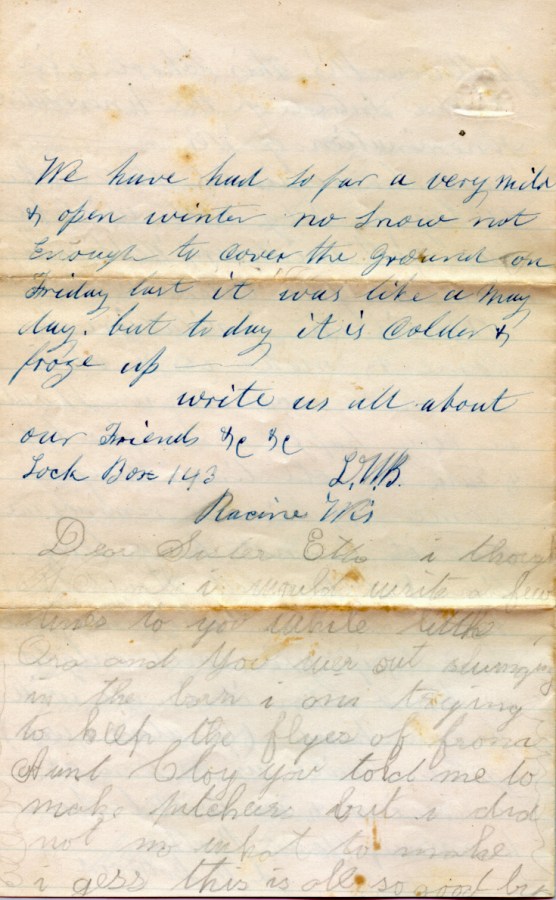 We have had so far a very mild
& open winter no snow not
Enough to cover the ground on
Friday last it was like a may
day. but to day it is Colder &
froze up
write us all about
our Friends &c &c
Lock Box 143 L.W.B.
Racine Wis
Dear Sister Etta i thought
i would write a few
lines to you while
Ora and you wer out swinging
in the barn i am trying
to keep the flyes of from
Aunt Cloy you told me to
make pitchurs but i did
not no what to make
i gess this is all so good bye